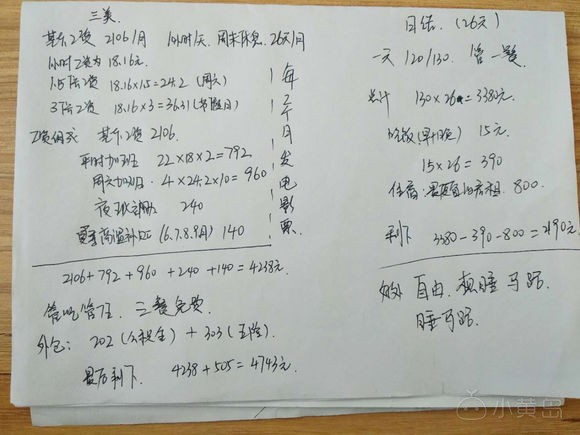 三美.
基本工资 2106/月 10小时/天. 周末休息. 26天/月
1小时工资为 18.16元.
1.5倍工资 18.16×1.5=24.2 (周六)
3倍工资 18.16×3=36.31(节假日)
工资组成 基本工资 2106.
平时加班 22×18×2=792
周六加班. 4×24.2×10=960
夜班补助 240
高温补贴 (6.7.8.9月) 140
每2个月发电影票.
2106+792+960+240+140=4238元.
管吃管住. 三餐免费
外包: 202(公积金) + 303(五险)
最后剩下. 4238+505=4743元.
日结. (26天)
一天 120/130. 管一餐
总计 130×26=3380元.
吃饭(早+晚) 15元
15×26=390
住宿: 房租. 800.
剩下 3380-390-800=2190元.
好处 自由. 想睡马路
睡马路.
小黄岛